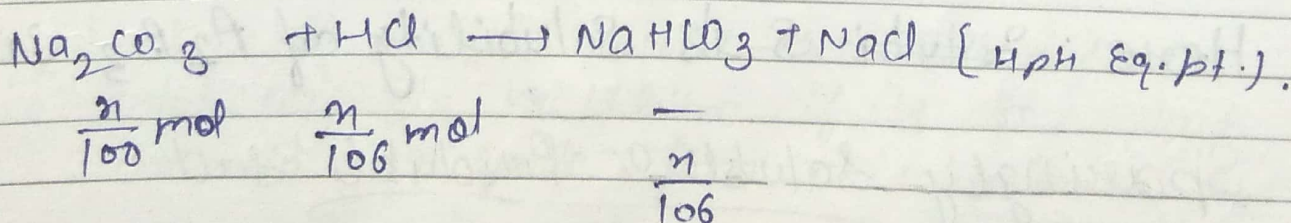 Na₂CO₃ + HCl → NaHCO₃ + NaCl [HPH Eq. pt.].
x/100 mol x/106 mol —
x/106